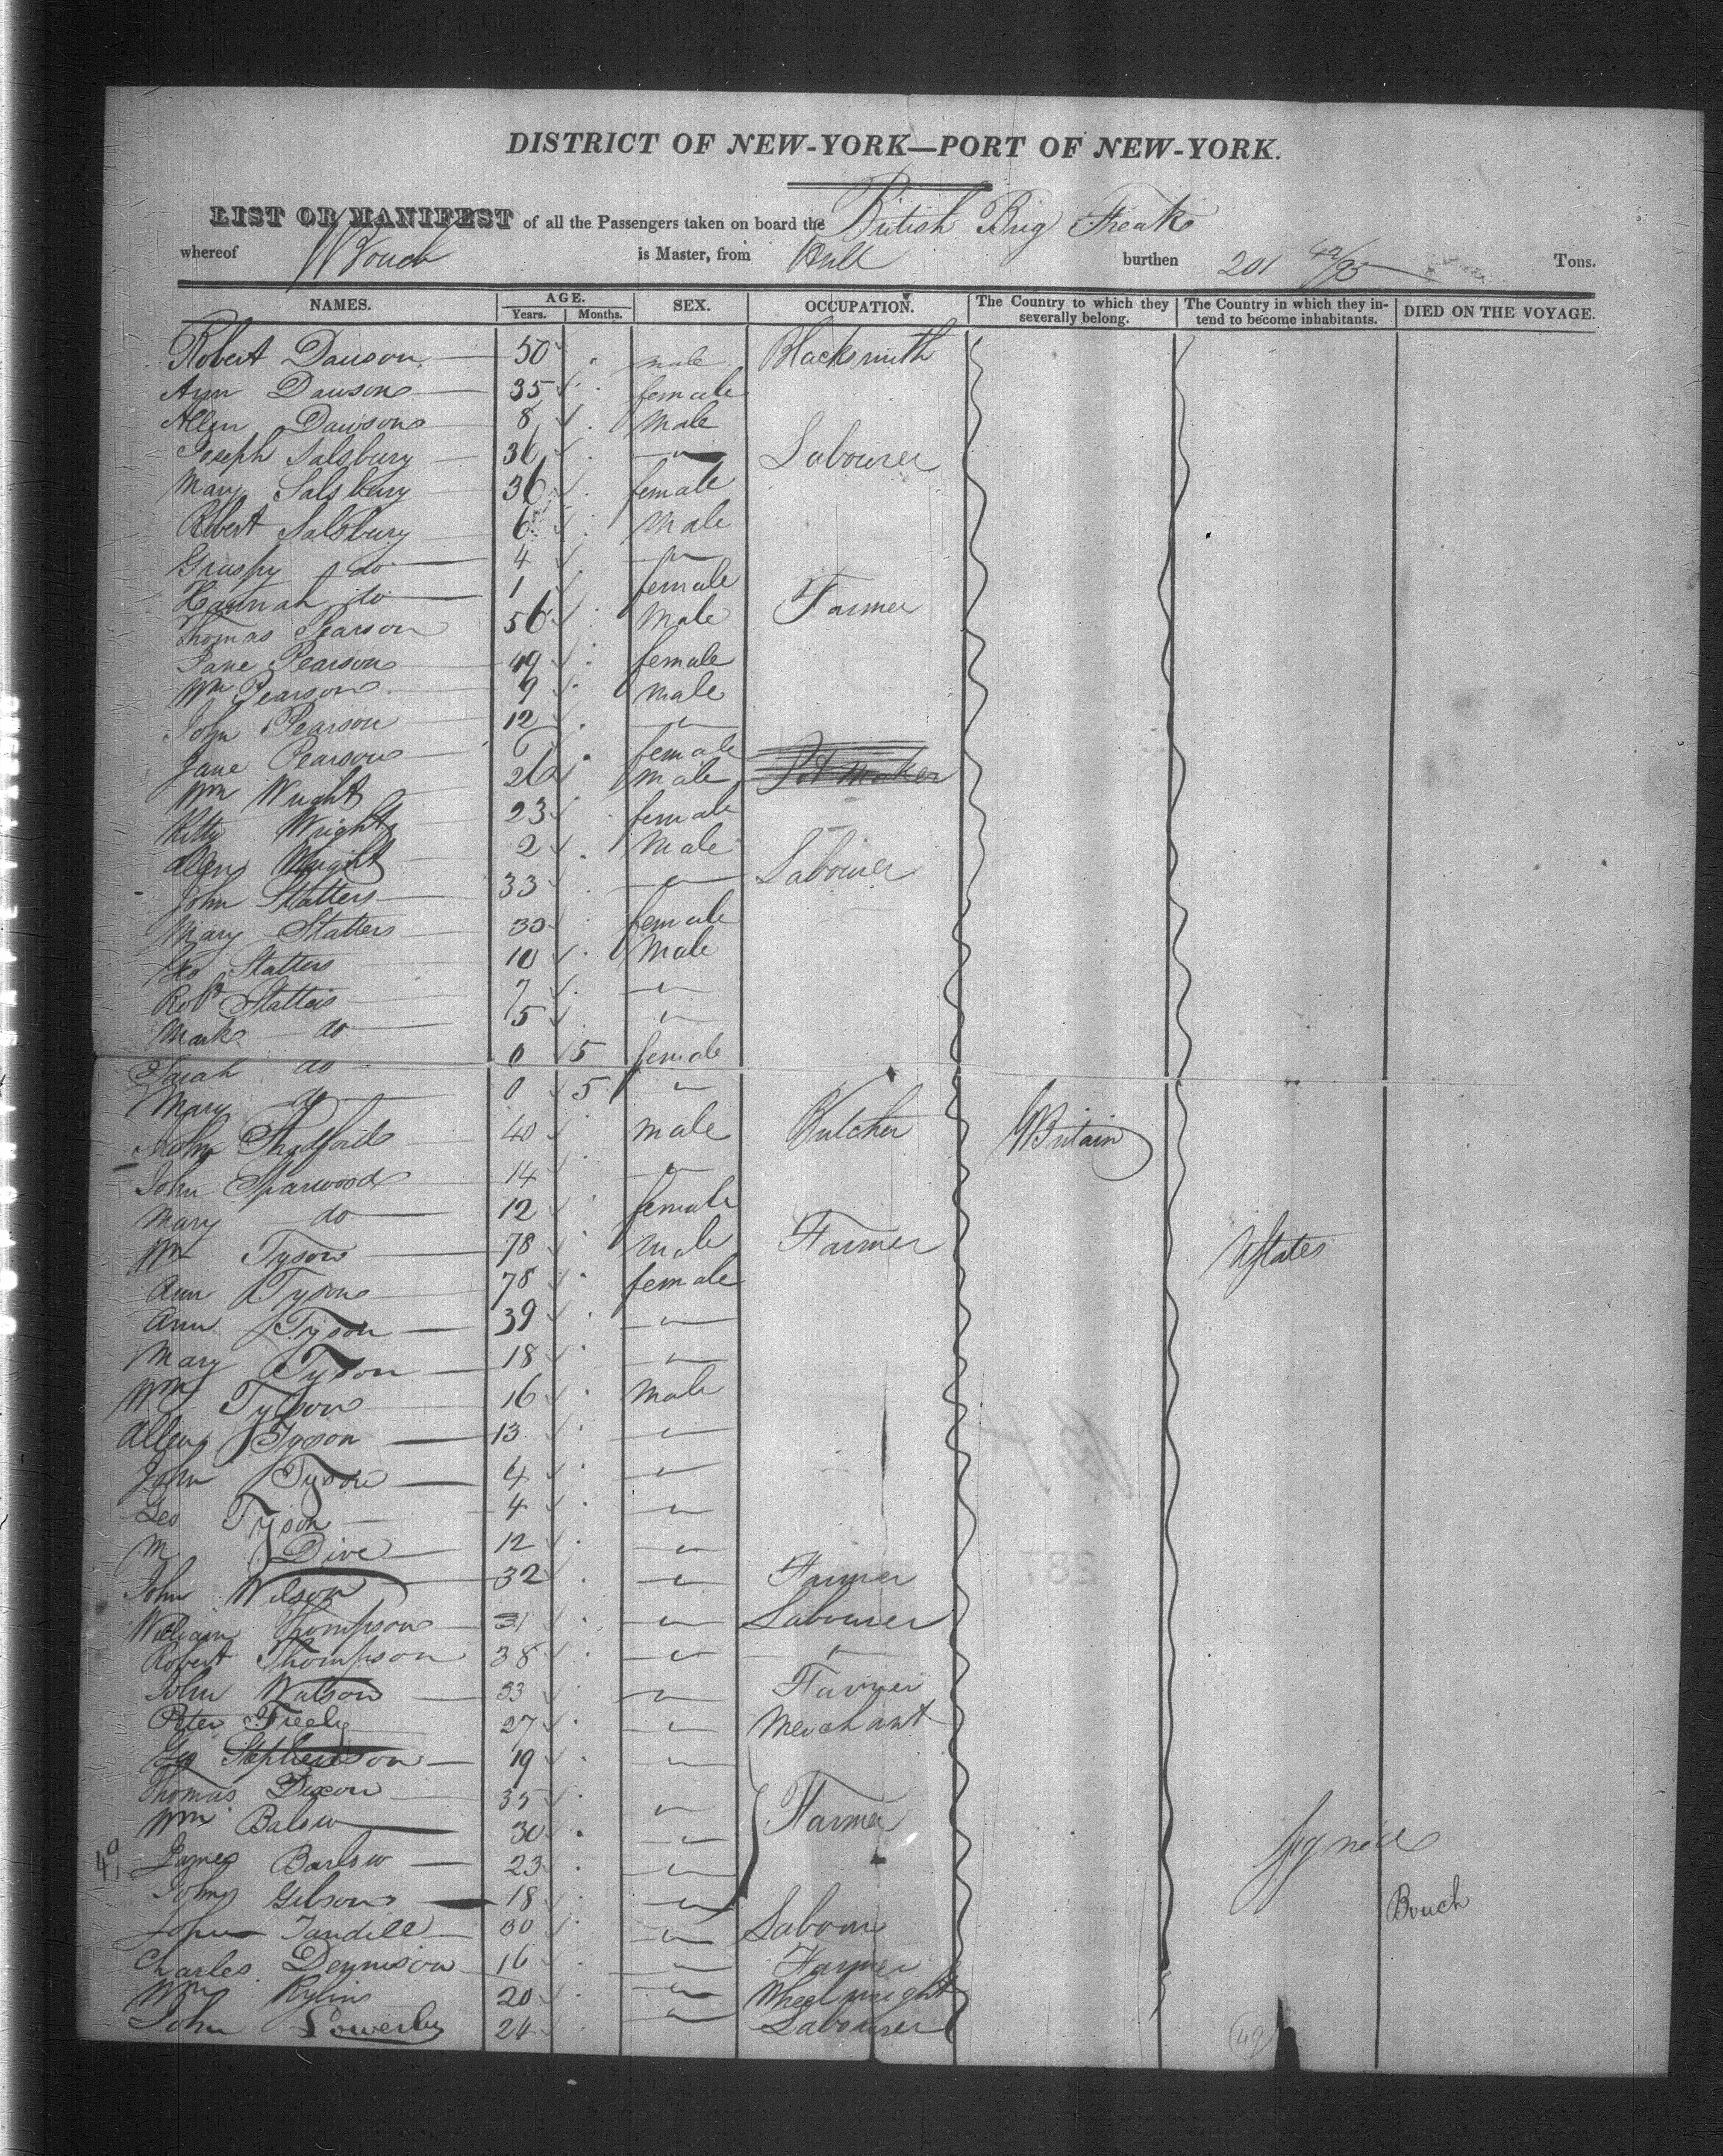 DISTRICT OF NEW-YORK—PORT OF NEW-YORK.
LIST OR MANIFEST of all the Passengers taken on board the British Brig Freak
whereof W Bouch is Master, from Hull burthen 201 42/95 Tons.
NAMES. AGE. Years. Months. SEX. OCCUPATION. The Country to which they severally belong. The Country in which they intend to become inhabitants. DIED ON THE VOYAGE.
Robert Dawson 50 male Blacksmith
Ann Dawson 35 female
Allen Dawson 8 male
Joseph Salsbury 36 " Labourer
Mary Salsbury 36 female
Robert Salsbury 6 male
do 4 "
Hannah do 1 female
Thomas Pearson 56 male Farmer
Jane Pearson 49 female
Wm Pearson 9 male
John Pearson 12 "
Jane Pearson 6 female
Wm Wright 26 male
Kitty Wright 23 female
Allen Wright 2 male
John Statters 33 " Labourer
Mary Statters 30 female
Geo Statters 10 male
Robt Statters 7 "
Mark do 5 "
Sarah do 0 5 female
Mary do 0 5 "
John 40 male Butcher G Britain
John 14 "
Mary do 12 female
Wm Tyson 78 male Farmer U States
Ann Tyson 78 female
Ann Tyson 39 "
Mary Tyson 18 "
Wm Tyson 16 male
Allen Tyson 13 "
John Tyson 4 "
Geo Tyson 4 "
M Dive 12 "
John Wilson 32 " Farmer
William Thompson 31 " Labourer
Robert Thompson 38 " "
John Watson 33 " Farmer
Peter Freely 27 " Merchant
Geo Stephenson 19 "
Thomas Dixon 35 "
Wm 30 " Farmer
James Barlow 23 "
John Gibson 18 "
John Tandell 30 " Labour
Charles Dennison 16 " Farmer
Wm 20 " Wheelwright
John Lowerby 24 " Labourer
Signed
Bouch
49